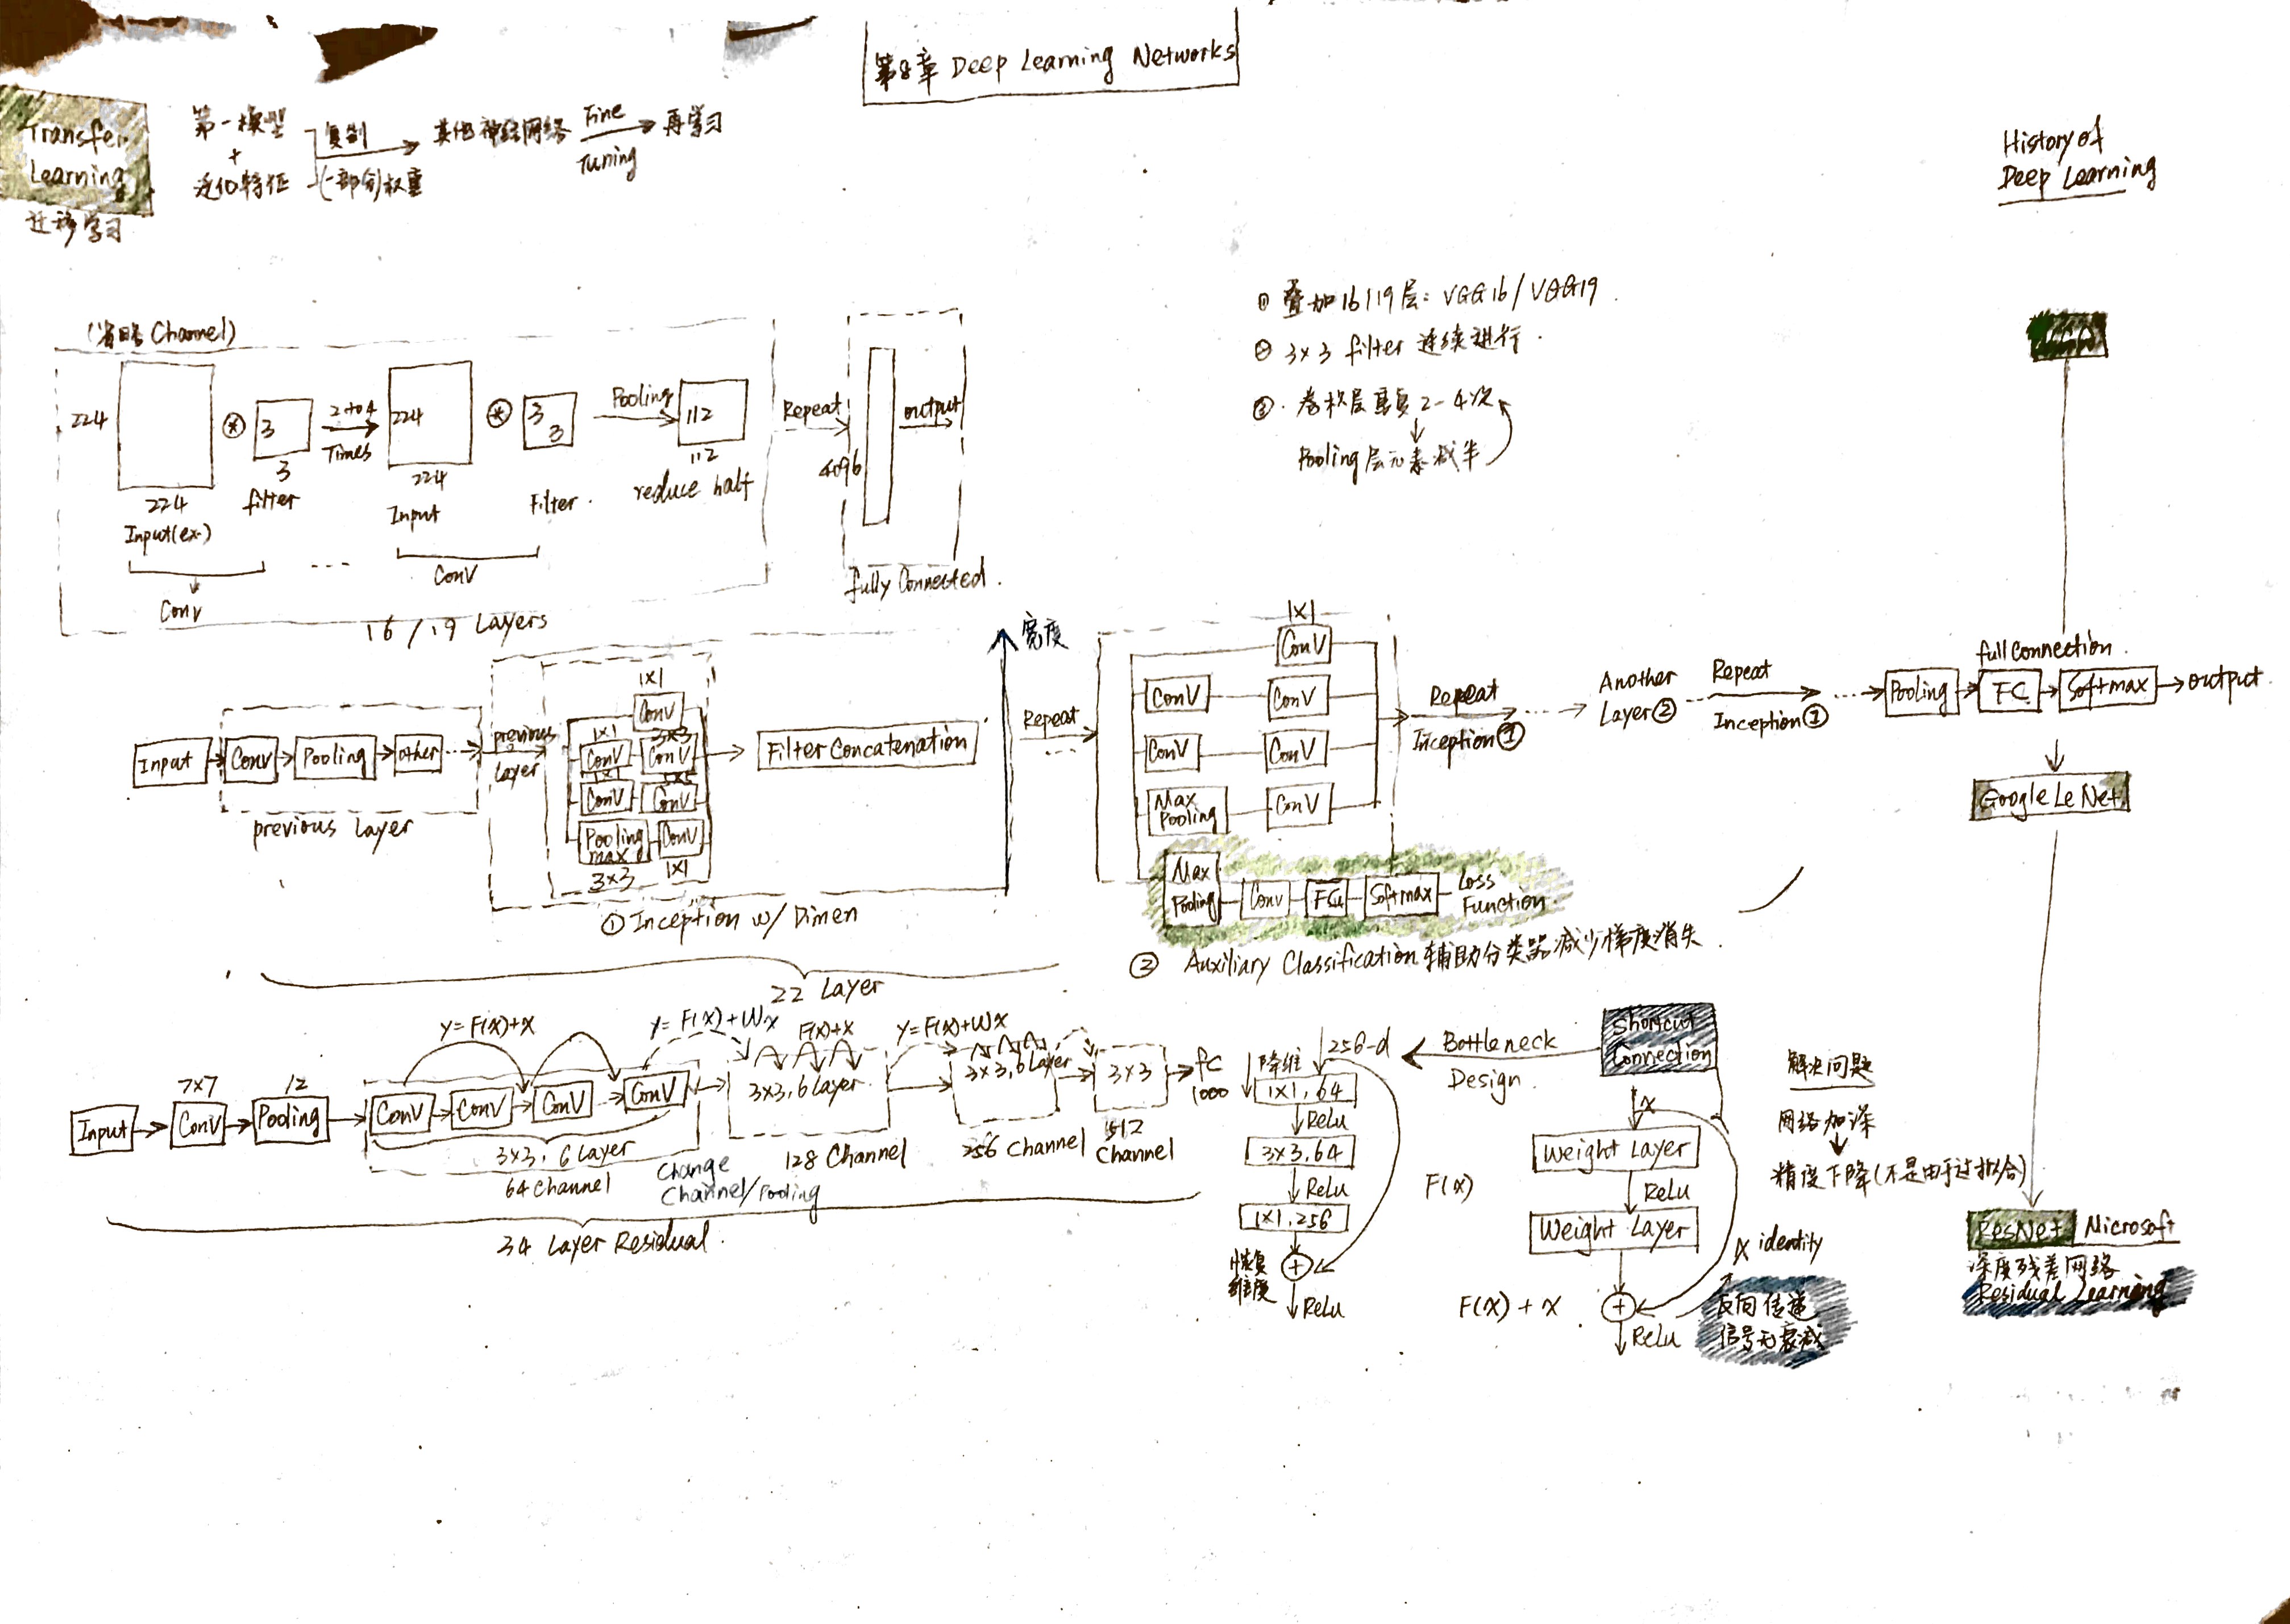 第8章 Deep Learning Networks
Transfer
Learning
迁移学习
第一模型
+
近似特征
复制
(一部分)权重
其他神经网络
Fine
Tuning
再学习
History of
Deep Learning
(省略 Channel)
224
224
Input(ex.)
*
3
3
filter
2 to 4
Times
224
224
Input
*
3
3
Filter.
Pooling
112
112
reduce half
Repeat
4096
output
fully Connected.
Conv
...
Conv
16/19 Layers
① 叠加16/19层: VGG16/VGG19.
② 3×3 filter 连续进行.
③. 卷积层重复2-4次
Pooling层元素减半
Input
Conv
Pooling
other
previous Layer
previous
Layer
1×1
Conv
1×1
Conv
3×3
Conv
1×1
Conv
5×5
Conv
Pooling
max
3×3
Conv
1×1
Filter Concatenation
① Inception w/ Dimen
宽度
Repeat
1×1
Conv
Conv
Conv
Conv
Conv
Max
Pooling
Conv
Max
Pooling
Conv
FC
Softmax
Loss
Function.
② Auxiliary Classification 辅助分类器减少梯度消失.
Repeat
Inception①
Another
Layer②
Repeat
Inception①
full Connection.
Pooling
FC
Softmax
output.
GoogleLeNet
22 Layer
Input
7×7
Conv
12
Pooling
y=F(x)+x
Conv
Conv
Conv
Conv
3×3, 6 Layer
64 Channel
y=F(x)+Wx
Change
Channel/Pooling
F(x)+x
3×3, 6 Layer.
128 Channel
y=F(x)+Wx
3×3, 6 Layer
256 Channel
3×3
512
Channel
fc
1000
34 Layer Residual.
256-d
降维
1×1, 64
Relu
3×3, 64
Relu
1×1, 256
恢复
维度
+
Relu
Bottleneck
Design.
Shortcut
Connection
x
Weight Layer
Relu
F(x)
Weight Layer
x identity
F(x)+x
+
Relu
反向传递
信号无衰减
解决问题
网络加深
精度下降(不是由于过拟合)
ResNet Microsoft
深度残差网络
Residual Learning